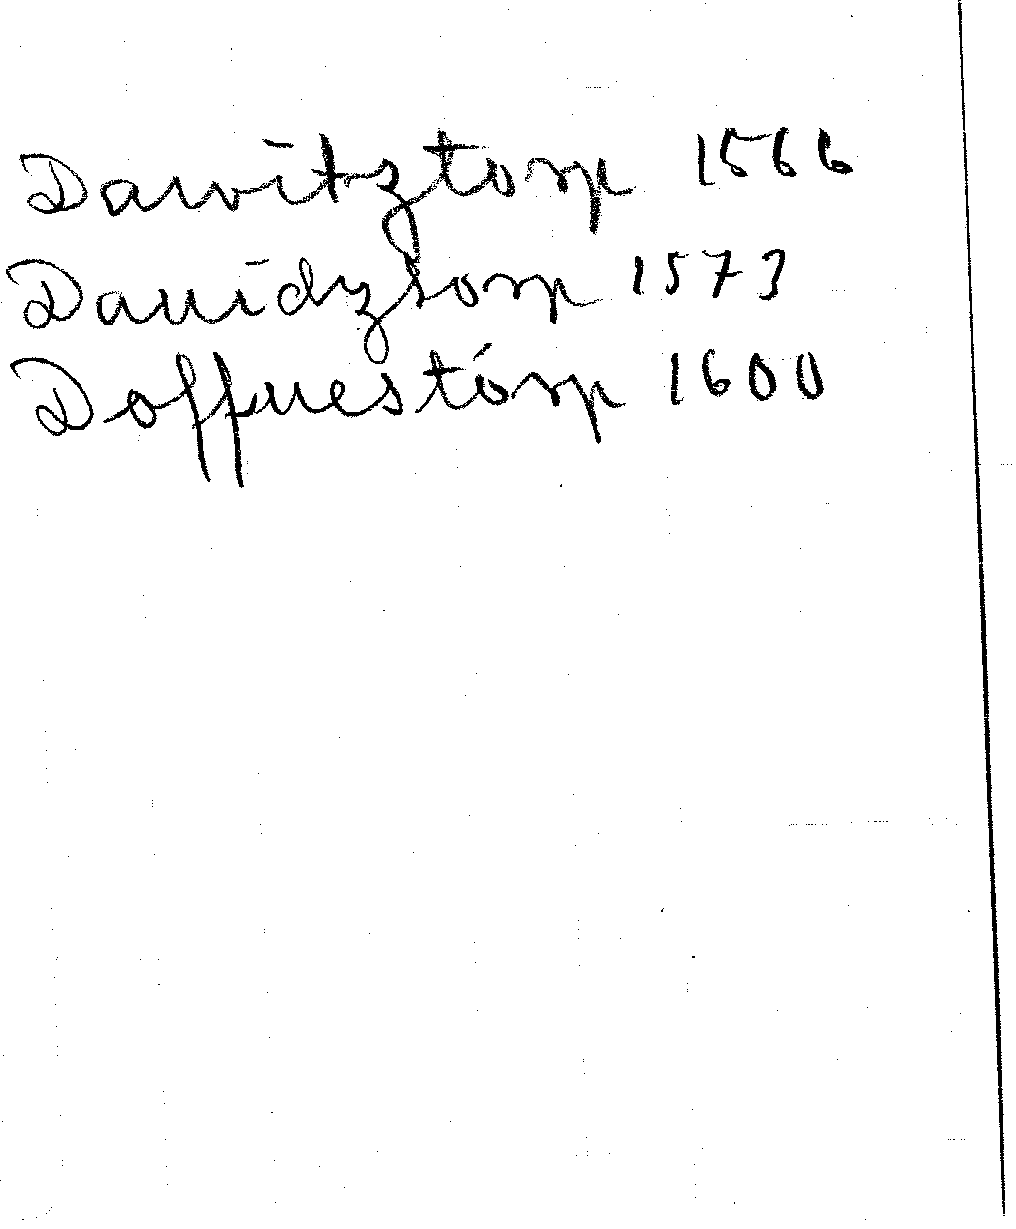 Dawitztorp 1566
Dauidztorp 1573
Doffuestórp 1600